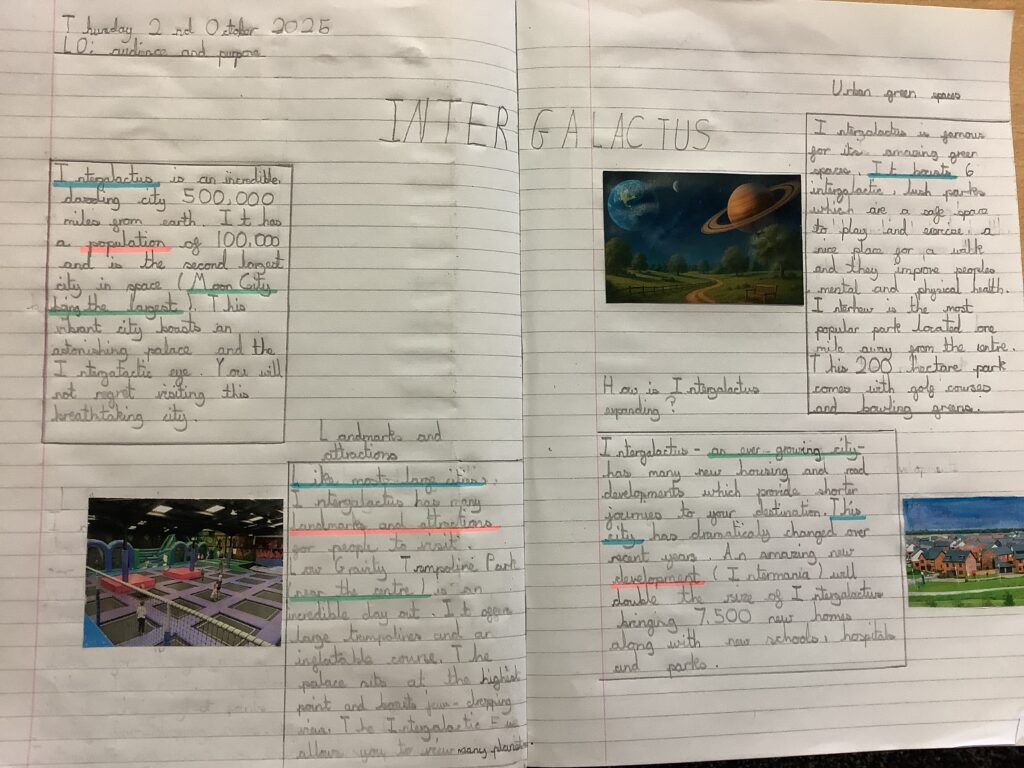 Thursday 2nd October 2025
LO: audience and purpose
INTERGALACTUS
Intergalactus is an incredible,
dazzling city 500,000
miles from earth. It has
a population of 100,000
and is the second largest
city in space (Moon City
being the largest). This
vibrant city boasts an
astonishing palace and the
Intergalactic eye. You will
not regret visiting this
breathtaking city.
Landmarks and
attractions
Like most large cities,
Intergalactus has many
landmarks and attractions
for people to visit.
Low Gravity Trampoline Park
(near the centre) is an
incredible day out. It offers
large trampolines and an
inflatable course. The
palace sits at the highest
point and boasts jaw-dropping
views. The Intergalactic Eye
allows you to view many planets.
Urban green spaces
Intergalactus is famous
for its amazing green
spaces. It boasts 6
intergalactic, lush parks
which are a safe space
to play and exercise, a
nice place for a walk
and they improve peoples
mental and physical health.
is the most
popular park located one
mile away from the centre.
This 200 hectare park
comes with golf courses
and bowling greens.
How is Intergalactus
expanding?
Intergalactus - an ever-growing city-
has many new housing and road
developments which provide shorter
journies to your destination. This
city has dramaticaly changed over
recent years. An amazing new
development (Intermania) will
double the size of Intergalactus
bringing 7,500 new homes
along with new schools, hospitals
and parks.